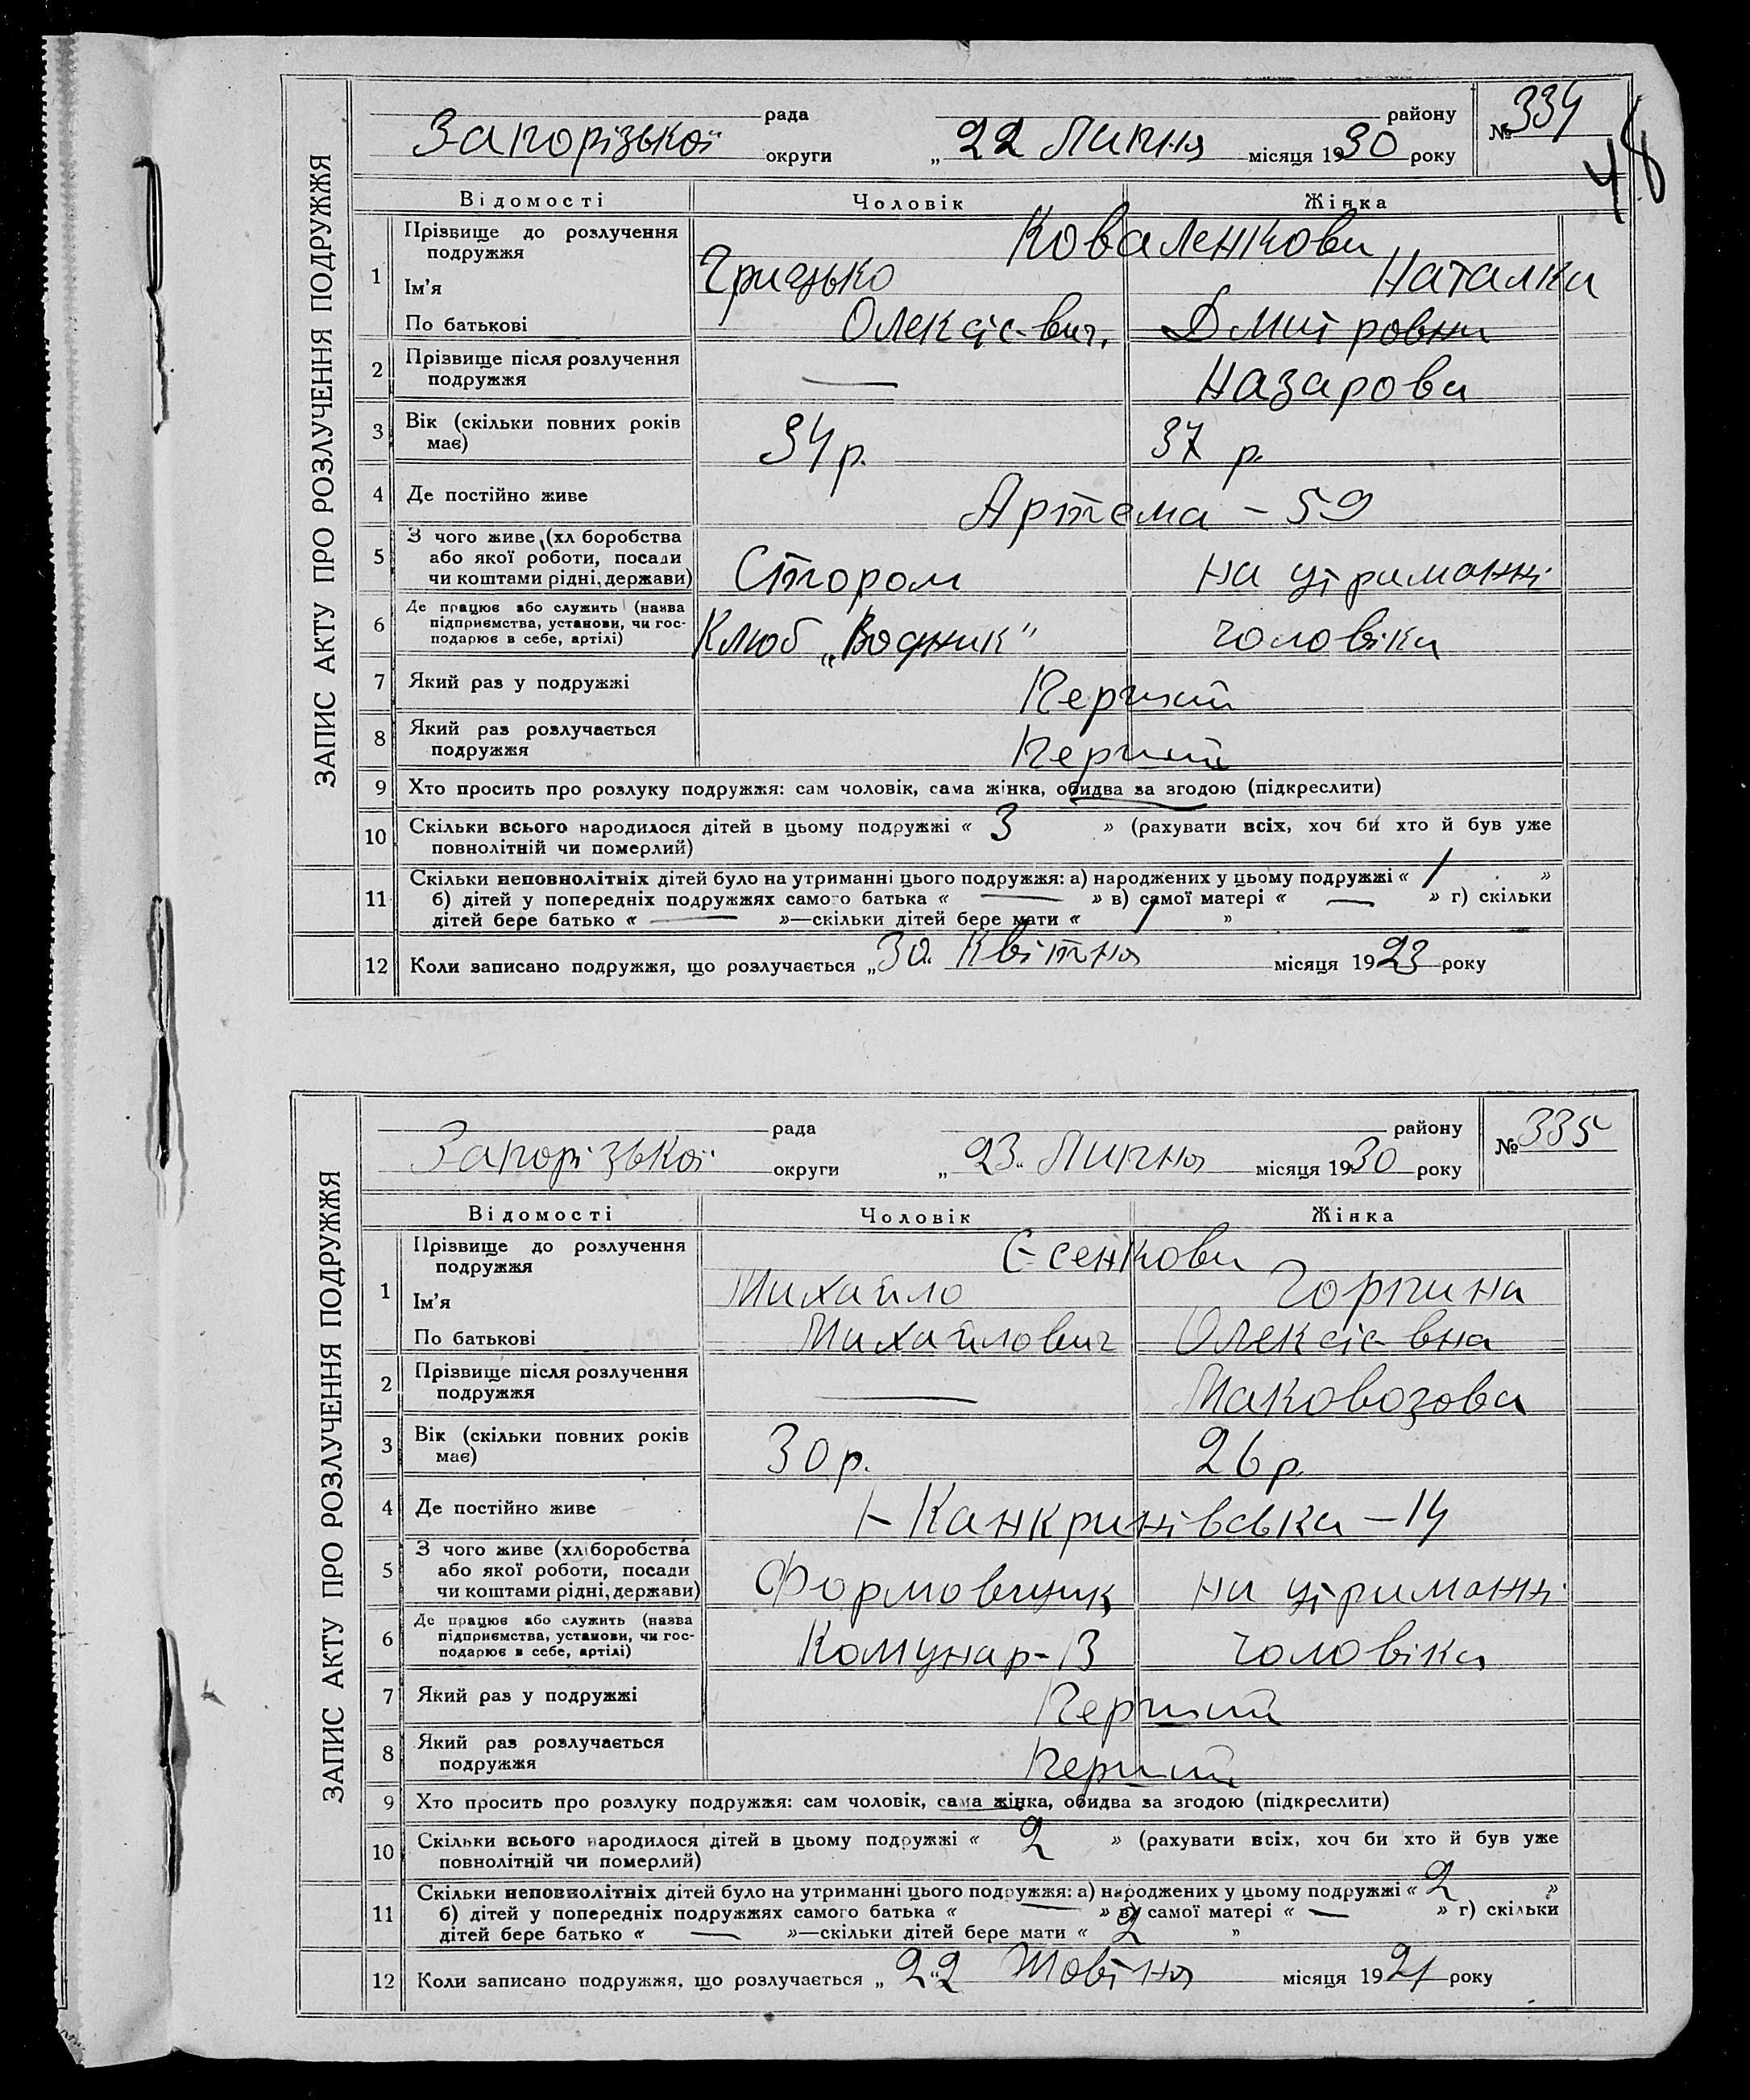 ЗАПИС АКТУ ПРО РОЗЛУЧЕННЯ ПОДРУЖЖЯ
рада району
№ 334
48
Запорізької округи „ 22 Липня місяця 1930 року
Відомості Чоловік Жінка
1 Прізвище до розлучення подружжя Коваленкови
Ім'я Грицько Наталка
По батькові Олексієвич. Дмитровна
2 Прізвище після розлучення подружжя — Назарова
3 Вік (скільки повних років має) 34 р. 37 р.
4 Де постійно живе Артема – 59
5 З чого живе (хліборобства
або якої роботи, посади
чи коштами рідні, держави) Сторож на утриманні
6 Де працює або служить (назва
підприємства, установи, чи гос-
подарює в себе, артілі) Клюб „Водник" чоловіка
7 Який раз у подружжі Перший
8 Який раз розлучається подружжя Перший
9 Хто просить про розлуку подружжя: сам чоловік, сама жінка, обидва за згодою (підкреслити)
10 Скільки всього народилося дітей в цьому подружжі « 3 » (рахувати всіх, хоч би хто й був уже
повнолітній чи померлий)
11 Скільки неповнолітніх дітей було на утриманні цього подружжя: а) народжених у цьому подружжі « 1 »
б) дітей у попередніх подружжях самого батька « — » в) самої матері « — » г) скільки
дітей бере батько « — »—скільки дітей бере мати « 1 »
12 Коли записано подружжя, що розлучається „ 30 Квітня місяця 1923 року
ЗАПИС АКТУ ПРО РОЗЛУЧЕННЯ ПОДРУЖЖЯ
рада району
№ 335
Запорізької округи „ 23 Липня місяця 1930 року
Відомості Чоловік Жінка
1 Прізвище до розлучення подружжя Єсенкови
Ім'я Михайло Горпина
По батькові Михайлович Олексієвна
2 Прізвище після розлучення подружжя — Маковозова
3 Вік (скільки повних років має) 30 р. 26 р.
4 Де постійно живе Канкринівська – 14
5 З чого живе (хліборобства
або якої роботи, посади
чи коштами рідні, держави) Формовщик на утриманні
6 Де працює або служить (назва
підприємства, установи, чи гос-
подарює в себе, артілі) Комунар-13 чоловіка
7 Який раз у подружжі Перший
8 Який раз розлучається подружжя Перший
9 Хто просить про розлуку подружжя: сам чоловік, сама жінка, обидва за згодою (підкреслити)
10 Скільки всього народилося дітей в цьому подружжі « 2 » (рахувати всіх, хоч би хто й був уже
повнолітній чи померлий)
11 Скільки неповнолітніх дітей було на утриманні цього подружжя: а) народжених у цьому подружжі « 2 »
б) дітей у попередніх подружжях самого батька « — » в) самої матері « — » г) скільки
дітей бере батько « — »—скільки дітей бере мати « 2 »
12 Коли записано подружжя, що розлучається „ 22 Жовтня місяця 1921 року